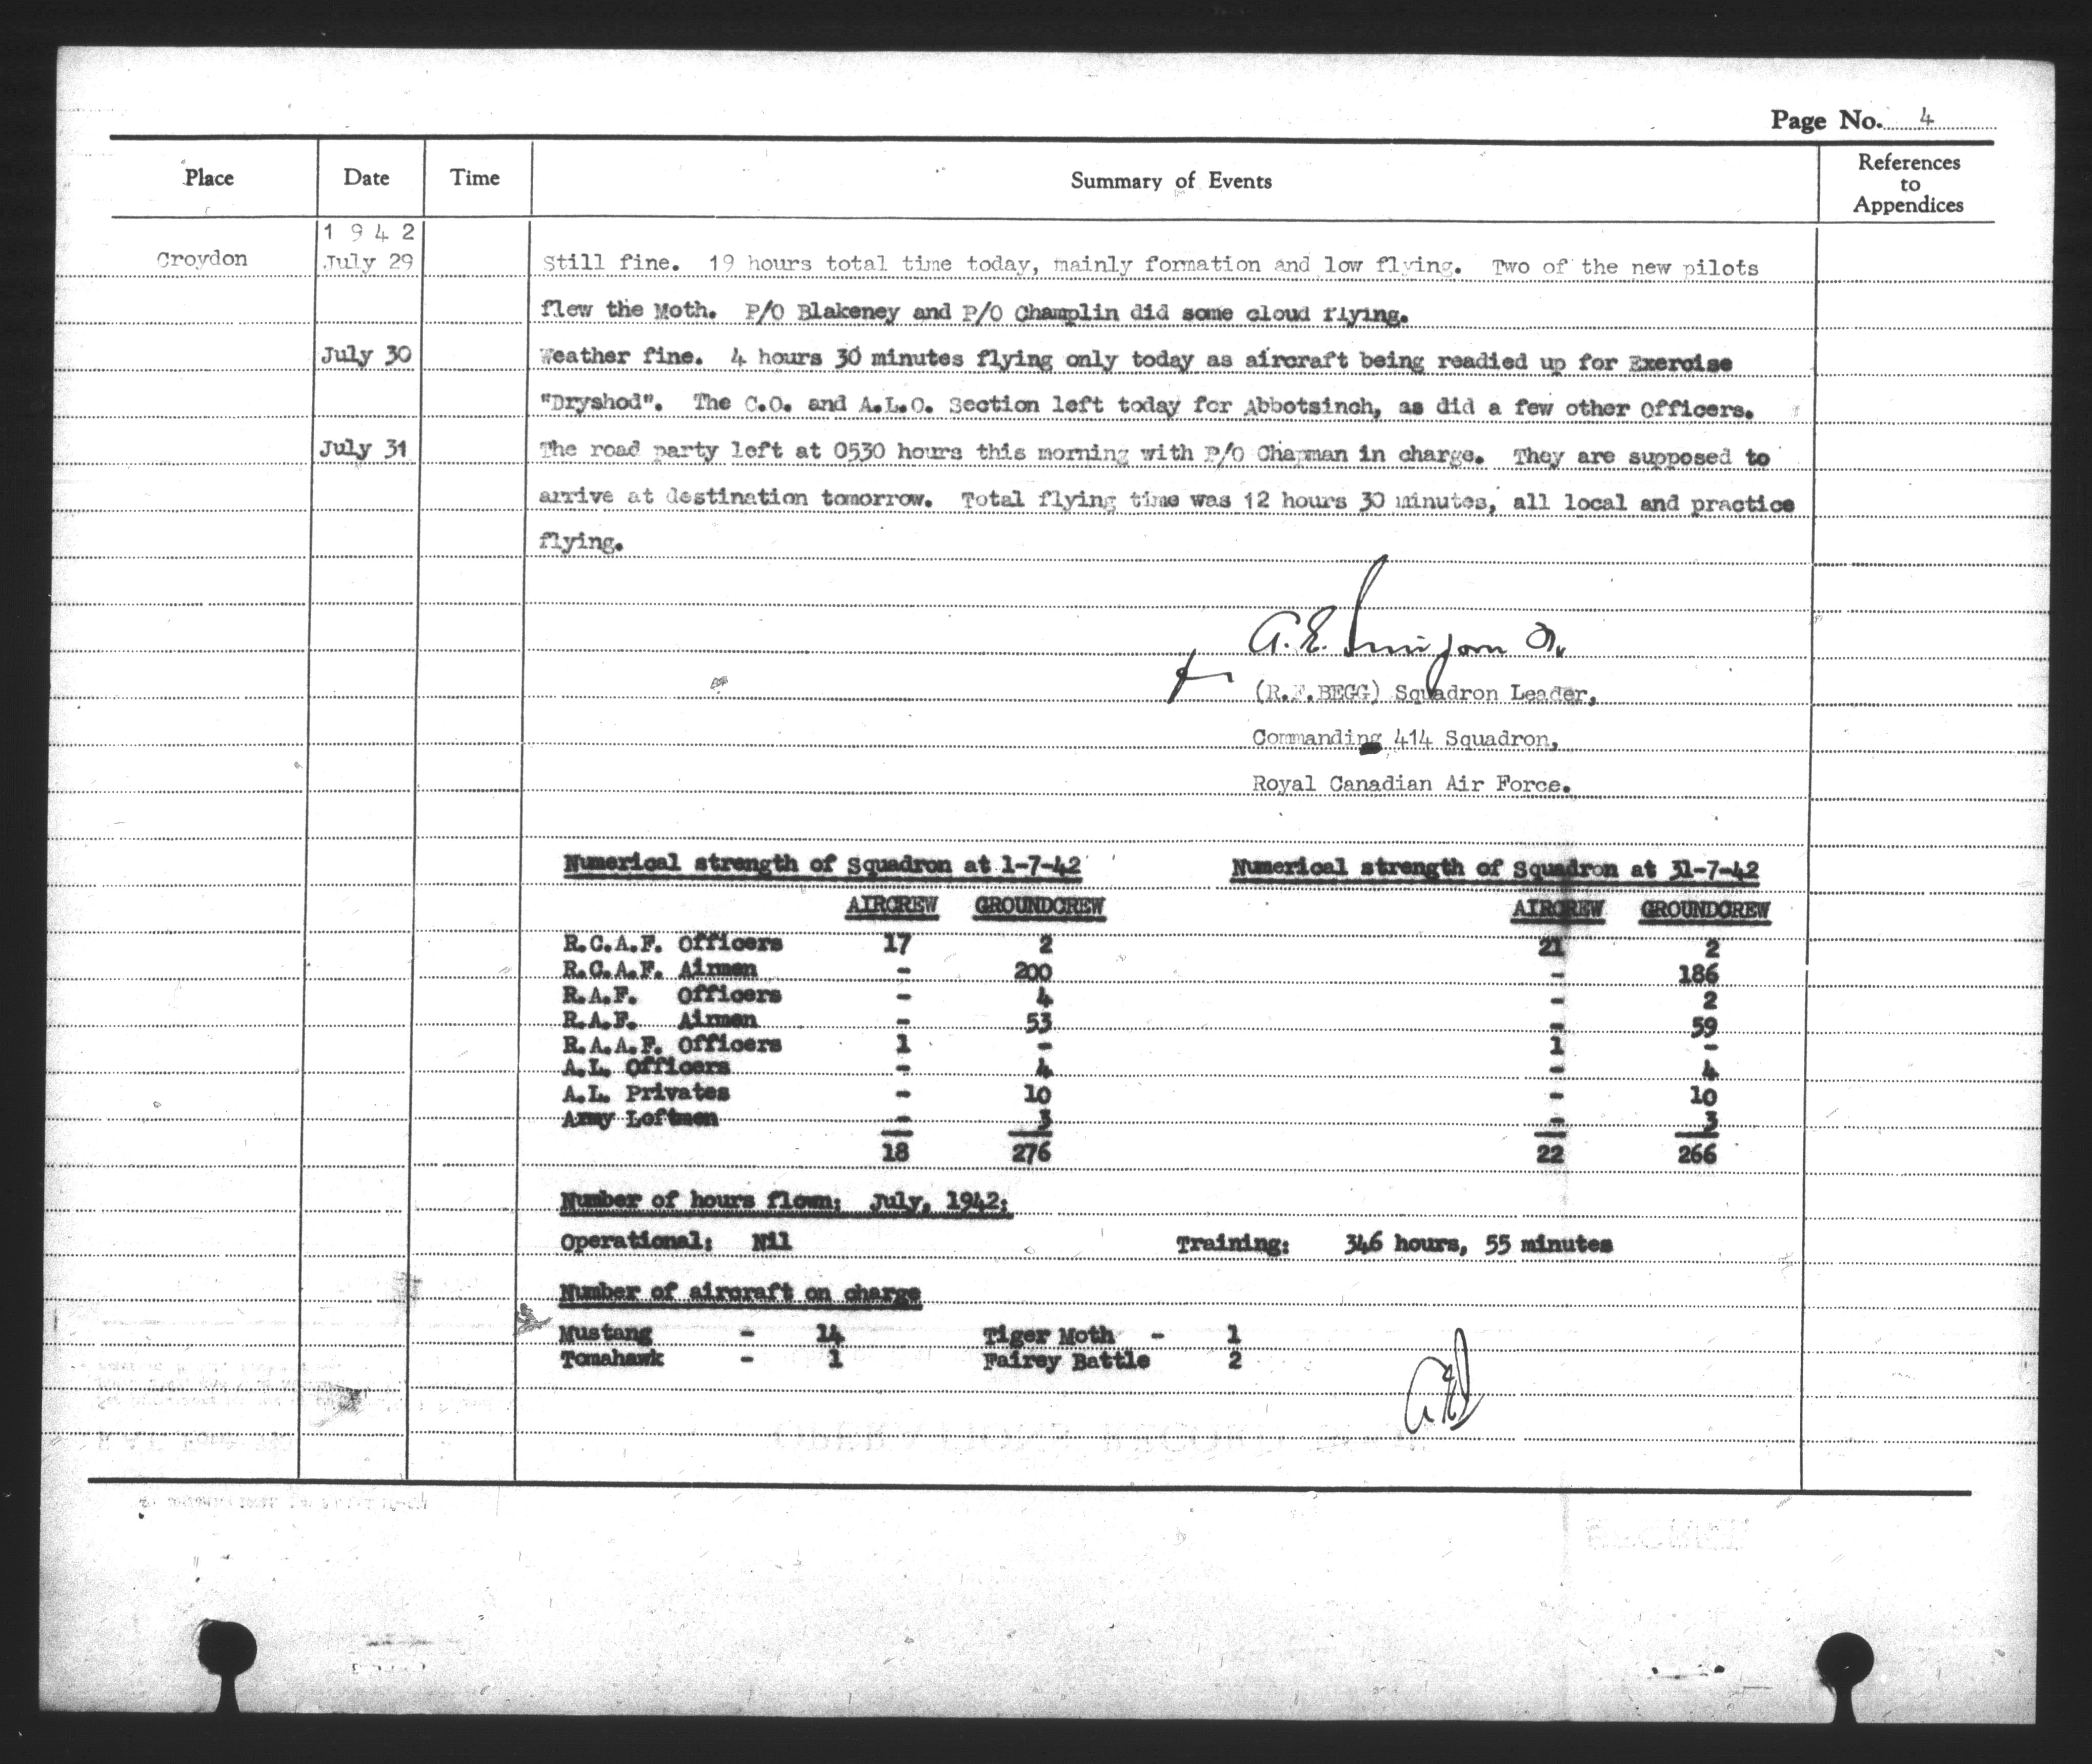 Page No. 4
Place Date Time Summary of Events References to Appendices
1942
Croydon July 29 Still fine. 19 hours total time today, mainly formation and low flying. Two of the new pilots
flew the Moth. P/O Blakeney and P/O Champlin did some cloud flying.
July 30 Weather fine. 4 hours 30 minutes flying only today as aircraft being readied up for Exercise
"Dryshod". The C.O. and A.L.O. Section left today for Abbotsinch, as did a few other Officers.
July 31 The road party left at 0530 hours this morning with P/O Chapman in charge. They are supposed to
arrive at destination tomorrow. Total flying time was 12 hours 30 minutes, all local and practice
flying.
A. E.
(R.F.BEGG) Squadron Leader,
Commanding 414 Squadron,
Royal Canadian Air Force.
Numerical strength of Squadron at 1-7-42 Numerical strength of Squadron at 31-7-42
AIRCREW GROUNDCREW AIRCREW GROUNDCREW
R.C.A.F. Officers 17 2 21 2
R.C.A.F. Airmen - 200 - 186
R.A.F. Officers - 4 - 2
R.A.F. Airmen - 53 - 59
R.A.A.F. Officers 1 - 1 -
A.L. Officers - 4 - 4
A.L. Privates - 10 - 10
Army Loftmen - 3 - 3
18 276 22 266
Number of hours flown: July, 1942:
Operational: Nil Training: 346 hours, 55 minutes
Number of aircraft on charge
Mustang - 14 Tiger Moth - 1
Tomahawk - 1 Fairey Battle 2